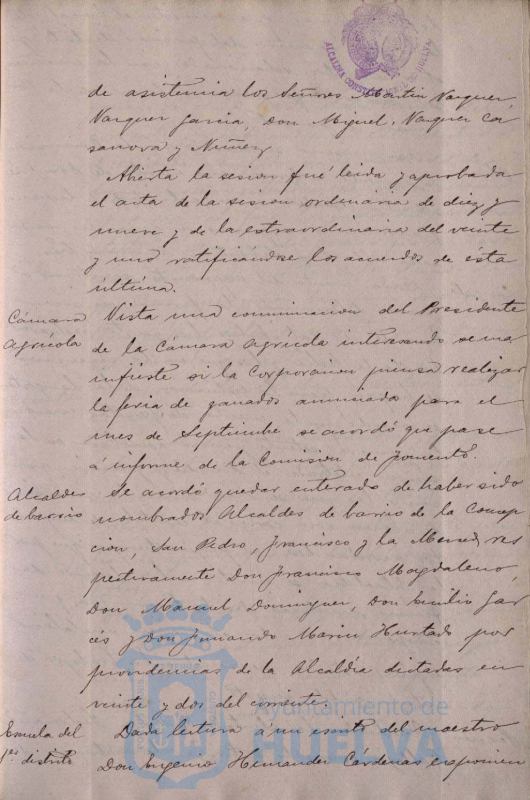 ALCALDIA CONSTITUCIONAL DE HUELVA
de asistencia los Señores Martin Vazquez,
Vazquez Garcia, Don Miguel, Vazquez Ca
sanova y Nuñez,
Abierta la sesion fué leida y aprobada
el acta de la sesion ordinaria de diez y
nueve y de la extraordinaria del veinte
y uno ratificándose los acuerdos de ésta
última.
Cámara
Agrícola
Vista una comunicacion del Presidente
de la Cámara Agrícola interesando se ma
nifieste si la Corporacion piensa realizar
la feria de ganados anunciada para el
mes de Septiembre se acordó que pase
á informe de la Comision de Fomento.
Alcaldes
de barrio
Se acordó quedar enterado de haber sido
nombrados Alcaldes de barrio de la Concep
cion, San Pedro, Francisco y la Merced, res
pectivamente Don Francisco Magdaleno,
Don Manuel Dominguez, Don Emilio Gar
cés y Don Fernando Marin Hurtado por
providencias de la Alcaldía dictadas en
veinte y dos del corriente.
Escuela del
1er distrito
Dada lectura a un escrito del maestro
Don Eugenio Hernandez Cárdenas exponien
Ayuntamiento de
HUELVA